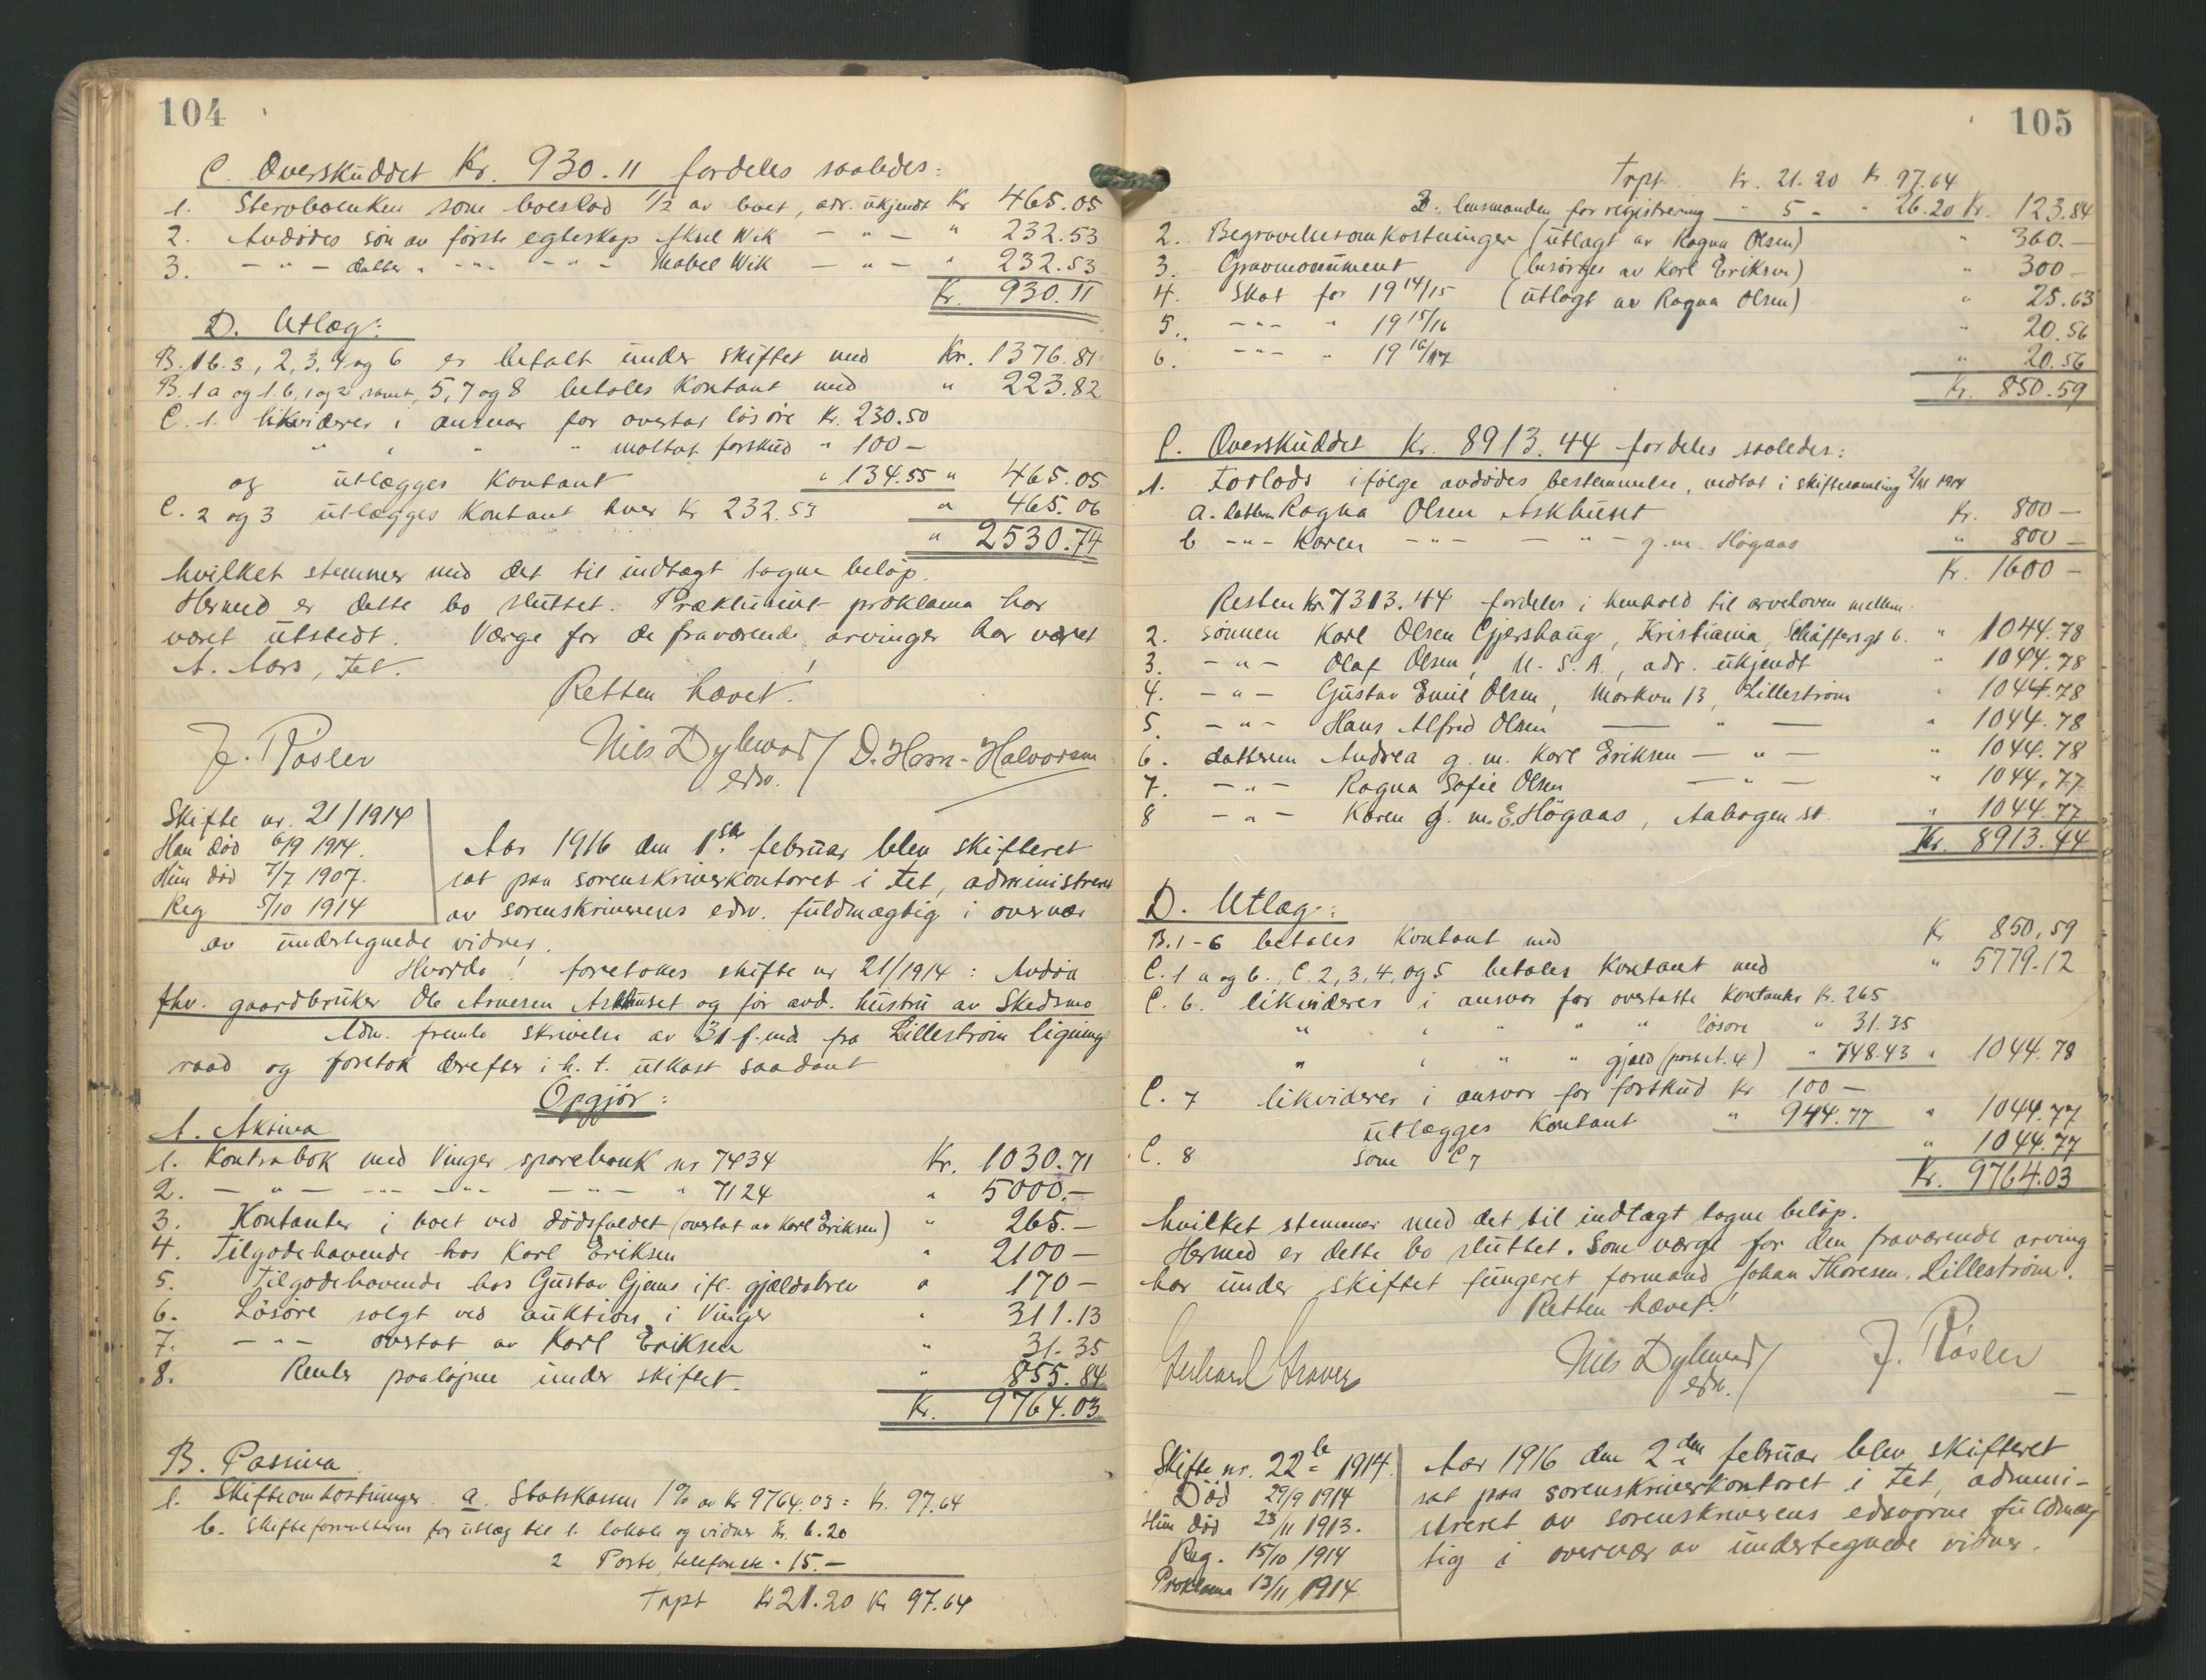 104
C. Overskuddet Kr. 930.11 fordeles saaledes:
1. Stervboenken som boeslod 1/2 av boet, adr. ukjendt Kr 465.05
2. Avdødes søn av første egteskap Aksel Wik — " — " 232.53
3. — " — datter " — " — — " — Mabel Wik — " — " 232.53
Kr. 930.11
D. Utlæg:
B. 1 b. 3, 2, 3, 4 og 6 er betalt under skiftet med Kr. 1376.81
B. 1 a og 1 b, 1 og 2 samt, 5, 7 og 8 betales kontant med " 223.82
C. 1. likviderer i ansvar for overtat løsøre Kr. 230.50
" " " " mottat forskud " 100 —
og utlægges kontant " 134.55 " 465.05
C. 2 og 3 utlægges kontant hver Kr 232.53 " 465.06
" 2530.74
hvilket stemmer med det til indtægt tagne beløp.
Hermed er dette bo sluttet. Præklusivt proklama har
været utstedt. Værge for de fraværende arvinger har været
A. Aars, Fet.
Retten hævet!
J. Røsler Nils Dyhwad / edsv. D. Horn-Halvorsen
Skifte nr. 21/1914
Han død 6/9 1914.
Hun død 7/7 1907.
Reg 5/10 1914
Aar 1916 den 1ste februar blev skifteret
sat paa sorenskriverkontoret i Fet, administreret
av sorenskriverens edsv. fuldmægtig i overvær
av undertegnede vidner.
Hvorda! foretokes skifte nr 21/1914: Avdøde
fhv. gaardbruker Ole Arnesen Askhuset og før avd. hustru av Skedsmo
Adm. fremla skrivelse av 31 f. md. fra Lillestrøm lignings
raad og foretok derefter i h. t. utkast saadant
Opgjør:
A. Aktiva
1. Kontrabok med Vinger sparebank nr 7434 Kr. 1030.71
2. — " — — " — — " — — " — " 7124 " 5000.—
3. Kontanter i boet ved dødsfaldet (overtat av Karl Eriksen) " 265.—
4. Tilgodehavende hos Karl Eriksen " 2100 —
5. Tilgodehavende hos Gustav Gjems ifl. gjældsbrev " 170 —
6. Løsøre solgt ved auktion i Vinger " 311.13
7. — " — overtat av Karl Eriksen " 31.35
8. Renter paaløpne under skiftet. " 855.84
Kr. 9764.03
B. Passiva
1. Skifteomkostninger. a. Statskassen 1% av Kr 9764.03 = Kr. 97.64
b. Skifteforvalteren for utlæg til 1. lokale og vidner Kr. 6.20
2 Porto, telefon etc " 15.—
Trpt Kr 21.20 Kr 97.64
105
Trpt. Kr. 21.20 Kr. 97.64
3. lensmanden for registrering " 5 — " 26.20 Kr. 123.84
2. Begravelsesomkostninger (utlagt av Ragna Olsen) " 360.—
3. Gravmonument (besørges av Karl Eriksen) " 300 —
4. Skat for 1914/15 (utlagt av Ragna Olsen) " 25.63
5. — " — " 1915/16 " 20.56
6. — " — " 1916/17 " 20.56
Kr. 850.59
C. Overskuddet Kr. 8913.44 fordeles saaledes:
1. Forlods ifølge avdødes bestemmelse, vedtat i skiftesamling 2/11 1914
a. datteren Ragna Olsen Askhuset Kr. 800 —
b — " — Karen — " — — " — g. m. Høgaas " 800 —
Kr. 1600 —
Resten Kr. 7313.44 fordeles i henhold til arveloven mellem:
2. sønnen Karl Olsen Gjershaug, Kristiania, Schäffersgt 6. " 1044.78
3. — " — Olaf Olsen, U.S.A., adr. ukjendt " 1044.78
4. — " — Gustav Emil Olsen, Markvn 13, Lillestrøm " 1044.78
5. — " — Hans Alfred Olsen — " — " 1044.78
6. datteren Andrea g. m. Karl Eriksen — " — " 1044.78
7. — " — Ragna Sofie Olsen — " — " 1044.77
8 — " — Karen g. m. E. Høgaas, Aabogen st. " 1044.77
Kr. 8913.44
D. Utlæg:
B. 1-6 betales kontant med Kr 850.59
C. 1 a og b., C. 2, 3, 4, og 5 betales kontant med " 5779.12
C. 6. likviderer i ansvar for overtatte kontanter Kr. 265
" " " " " løsøre " 31.35
" " " " gjæld (post A. 4) " 748.43 " 1044.78
C. 7 likviderer i ansvar for forskud Kr 100 —
utlægges kontant " 944.77 " 1044.77
C. 8 som C 7 " 1044.77
Kr. 9764.03
hvilket stemmer med det til indtægt tagne beløp.
Hermed er dette bo sluttet. Som værge for den fraværende arving
har under skiftet fungeret formand Johan Thoresen, Lillestrøm.
Retten hævet!
Gerhard Graver Nils Dyhwad / edsv. J. Røsler
Skifte nr. 22b 1914.
Død 29/9 1914
Hun død 23/11 1913.
Reg. 15/10 1914
Proklama 13/11 1914
Aar 1916 den 2den februar blev skifteret
sat paa sorenskriverkontoret i Fet, admini-
streret av sorenskriverens edsvorne fuldmæg
tig i overvær av undertegnede vidner.